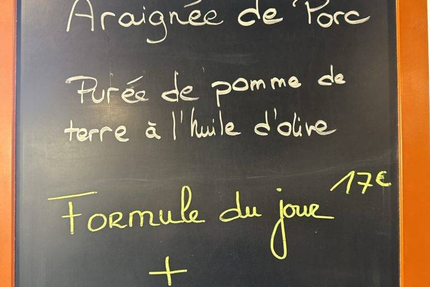 Araignée de Porc
Purée de pomme de
terre à l'huile d'olive
Formule du jour 17€
+